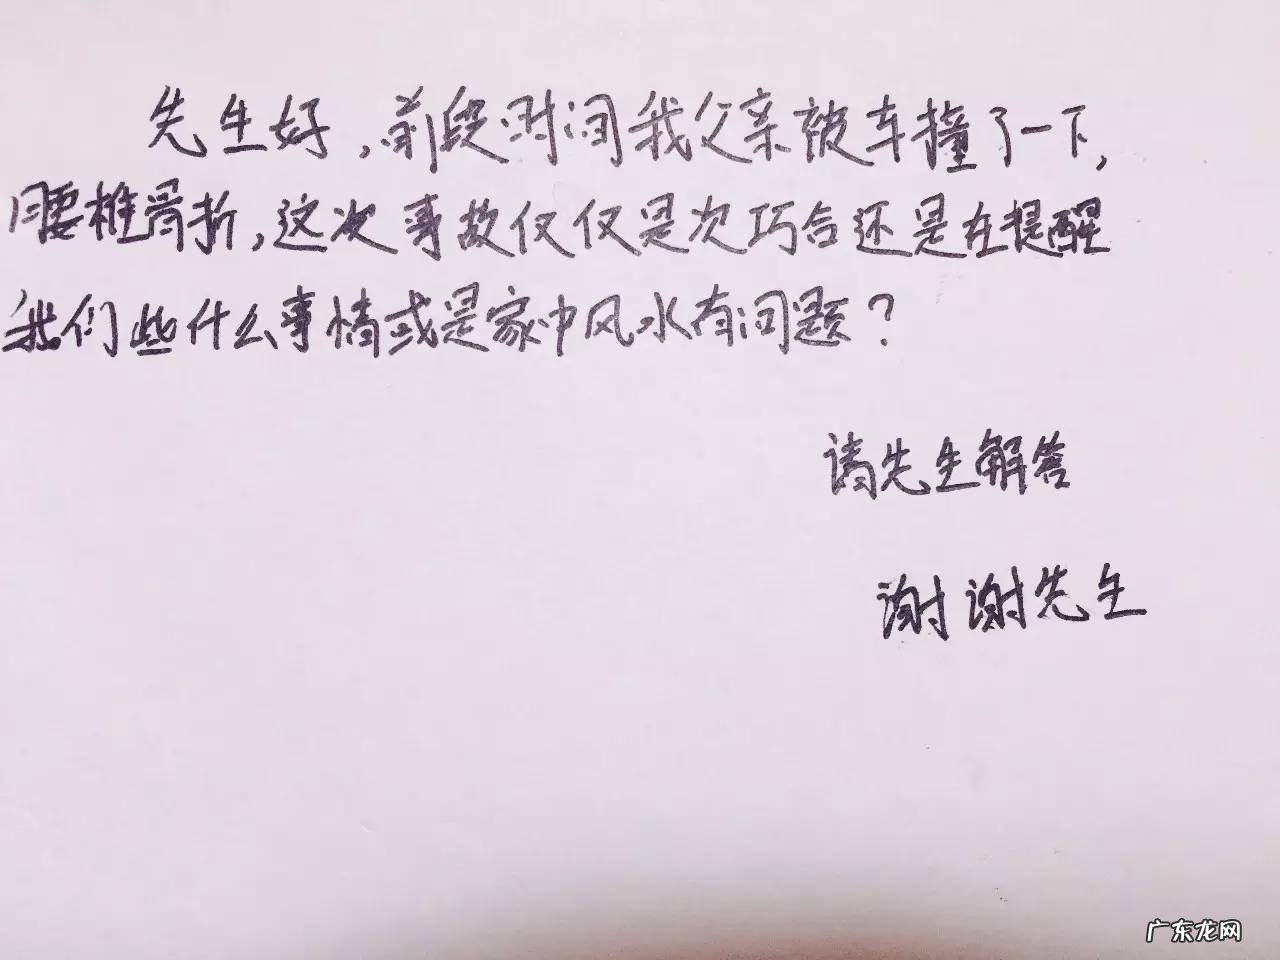 先生好,前段时间我父亲被车撞了一下,
腰椎骨折,这次事故仅仅是次巧合还是在提醒
我们些什么事情或是家中风水有问题?
请先生解答
谢谢先生
广东龙网